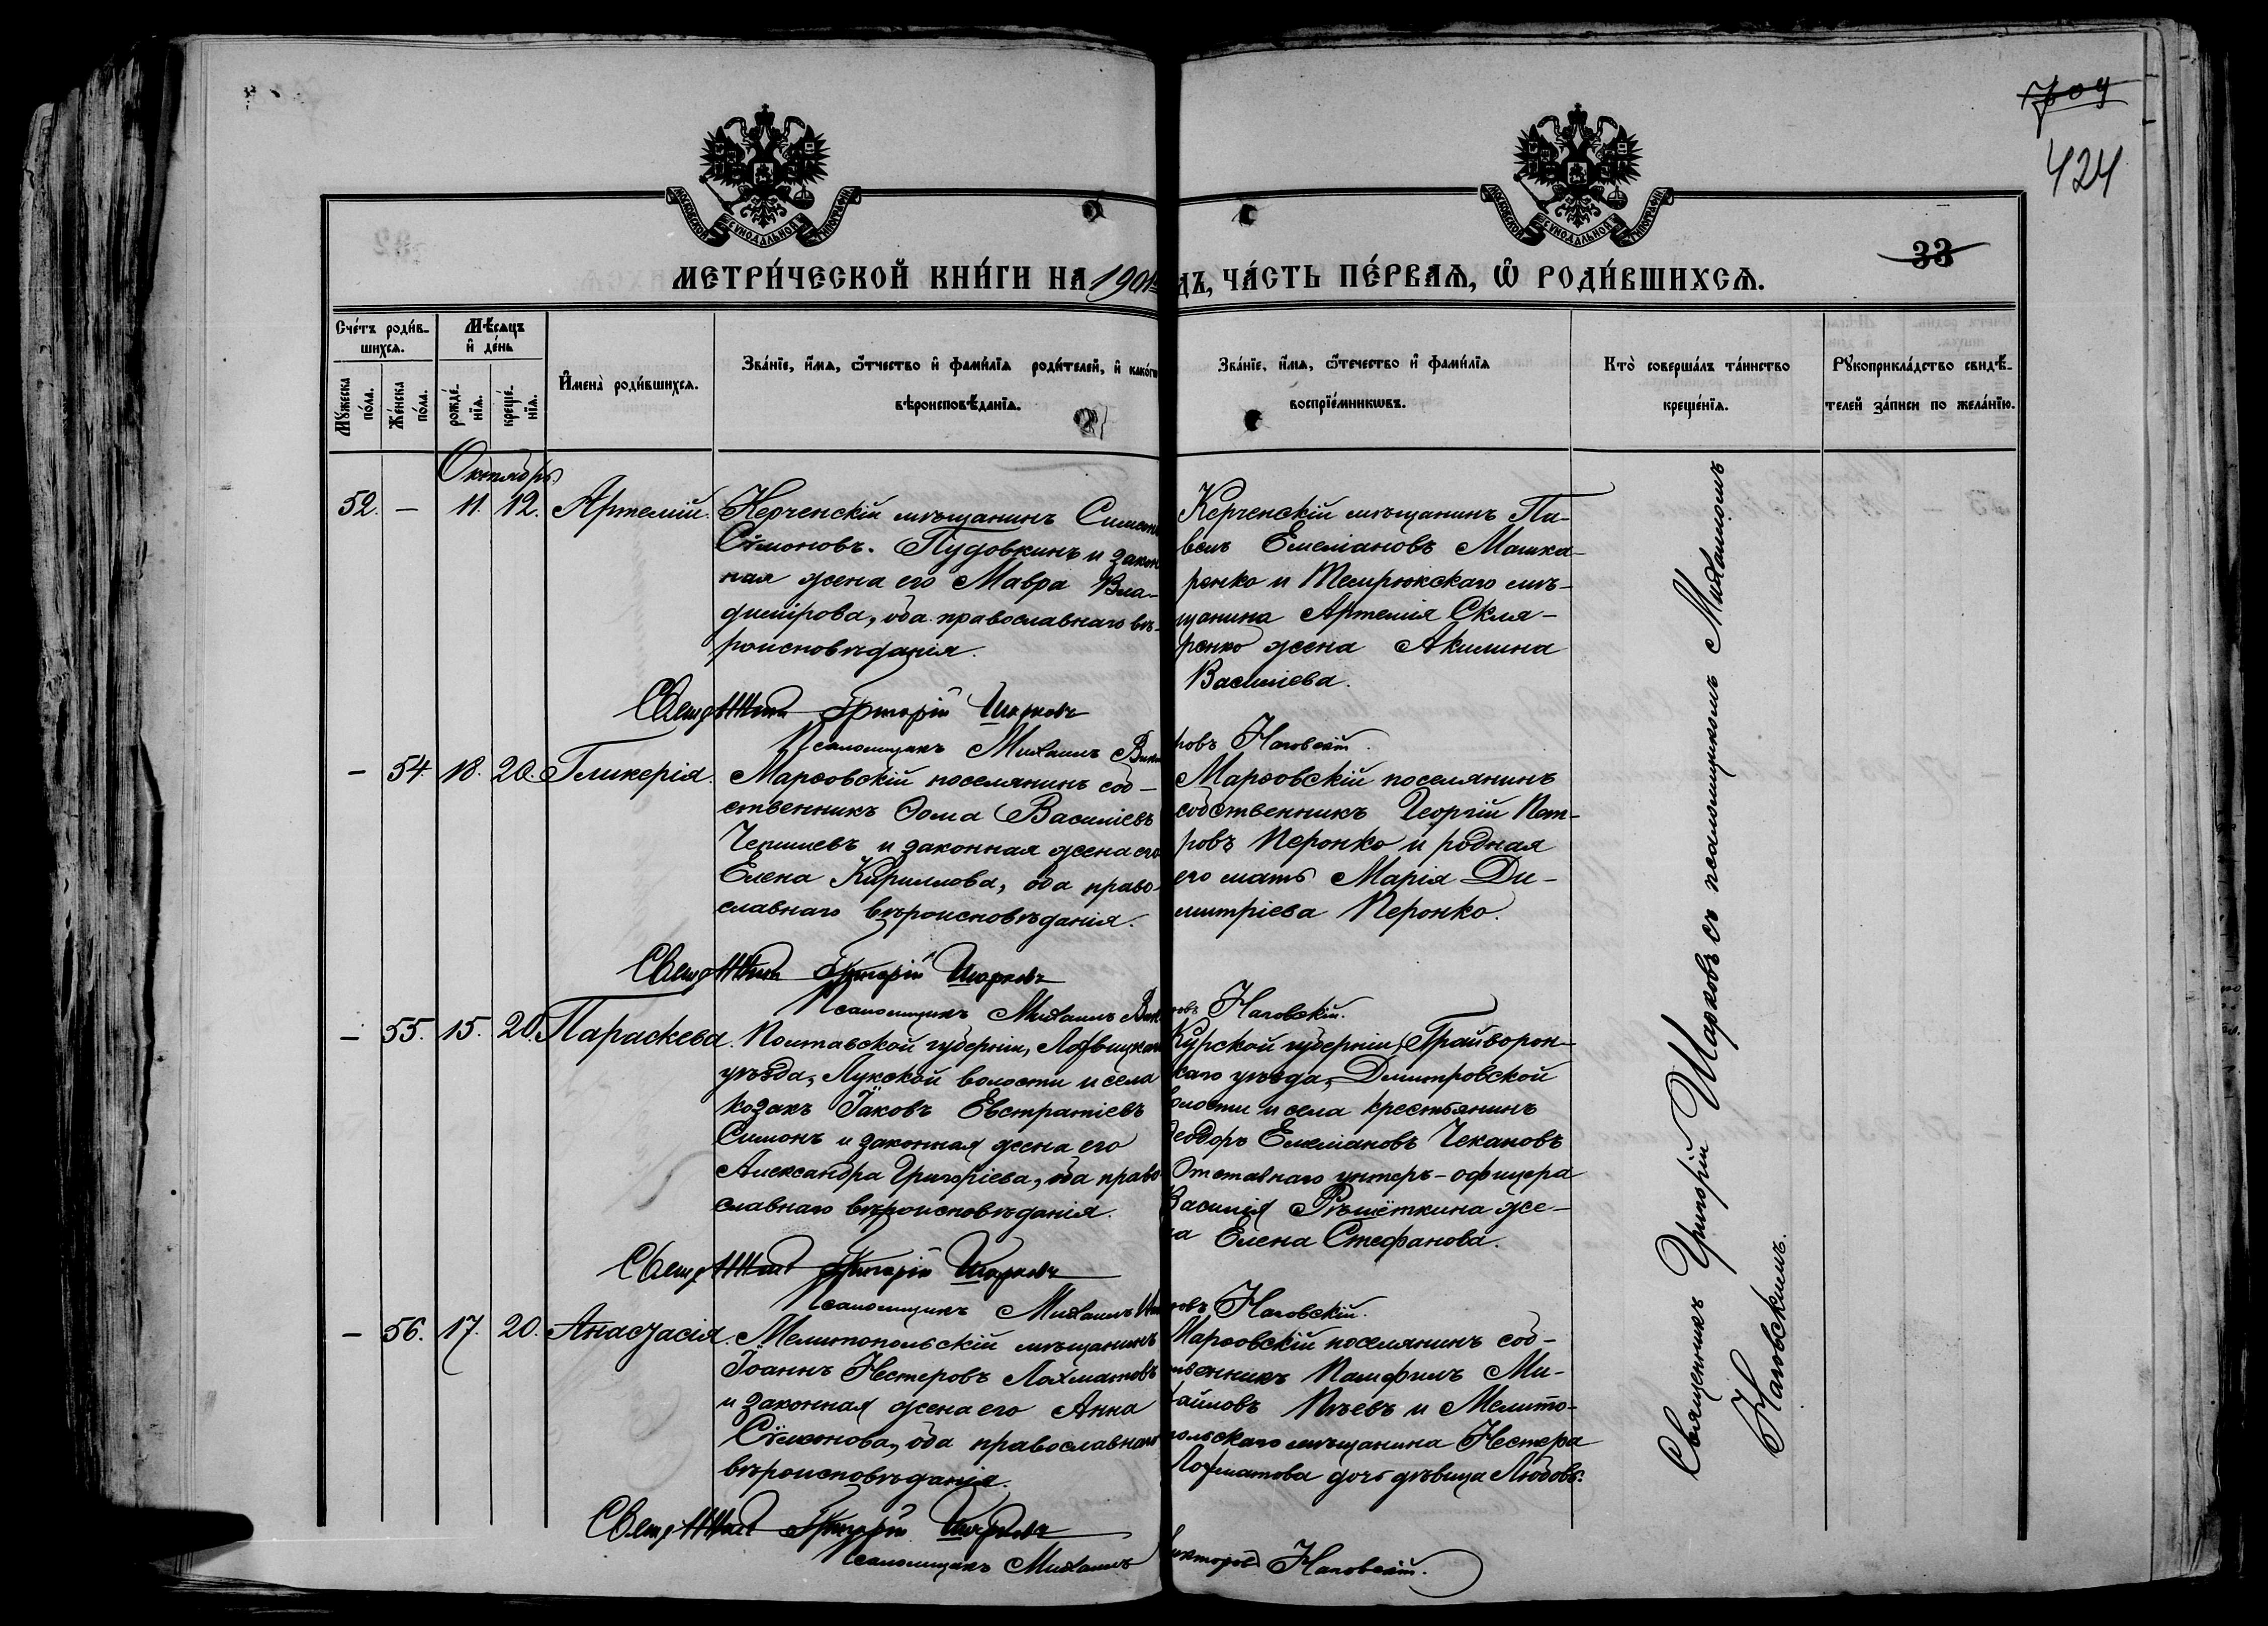 709
424
МОСКОВСКОЙ СѴНОДАЛЬНОЙ ТИПОГРАФІИ
МОСКОВСКОЙ СѴНОДАЛЬНОЙ ТИПОГРАФІИ
33
МЕТРИ́ЧЕСКОЙ КНИ́ГИ НА 1901 г
дъ, ЧА́СТЬ ПЕ́РВАѦ, Ѡ҆ РОДИ́ВШИХСѦ.
Сче́тъ роди́в-
шихсѧ.
Мꙋ́жеска
по́ла.
Же́нска
по́ла.
Мѣ́сѧцъ
и҆ де́нь
рожде́-
нїѧ.
креще́-
нїѧ.
И҆мена̀ роди́вшихсѧ.
Зва́нїе, и҆́мѧ, ѻ҆́тчество и҆ фами́лїѧ роди́телей, и҆ како́гѡ
вѣроисповѣ́данїѧ.
Зва́нїе, и҆́мѧ, ѻ҆те́чество и҆ фами́лїѧ
воспрїе́мникѡвъ.
Кто̀ соверша́лъ та́инство
креще́нїѧ.
Рꙋкоприкла́дство свидѣ́-
телей за́писи по жела́нїю.
Октябрь
52. — 11. 12. Артемій. Керченскій мѣщанинъ Симеонъ
Сѵмоновъ. Пудовкинъ и закон
ная жена его Мавра Вла-
димірова, оба православнаго вѣ-
роисповѣданія.
Керченскій мѣщанинъ Па-
велъ Емеліановъ Машка-
ренко и Темрюкскаго мѣ-
щанина Артемія Скля-
ренко жена Акилина
Василіева.
Священникъ Григорій Шарковъ
Псаломщикъ Михаилъ Вик
ровъ Наговскій.
— 54. 18. 20. Гликерія. Марѳовскій поселянинъ соб-
ственникъ Ѳома Василіевъ
Чепишевъ и законная жена его
Елена Кириллова, оба право-
славнаго вѣроисповѣданія.
Марѳовскій поселянинъ
собственникъ Георгій Пет-
ровъ Перонко и родная
его мать Марія Ди-
митріева Перонко.
Священникъ Григорій Шарковъ
Псаломщикъ Михаилъ Вик
ровъ Наговскій.
— 55. 15. 20. Параскева. Полтавской губерніи, Лохвицкаго
уѣзда, Лукской волости и села
козакъ Іаковъ Евстратіевъ
Симонъ и законная жена его
Александра Григоріева, оба право
славнаго вѣроисповѣданія.
Курской губерніи, Грайворон-
скаго уѣзда, Дмитровской
волости и села крестьянинъ
Ѳеодоръ Емеліановъ Чекановъ
Отставнаго унтеръ-офицера
Василія Рѣшёткина же-
на Елена Стефанова.
Священникъ Григорій Шарковъ
Псаломщикъ Михаилъ Вик
ровъ Наговскій.
— 56. 17. 20. Анастасія. Мелитопольскій мѣщанинъ
Іоаннъ Нестеровъ Лохматовъ
и законная жена его Анна
Сѵмеонова, оба православнаго
вѣроисповѣданія.
Марѳовскій поселянинъ соб-
ственникъ Памфилъ Ми-
хайловъ Пѣевъ и Мелито-
польскаго мѣщанина Нестера
Лохматова дочь дѣвица Любовь.
Священникъ Григорій Шарковъ
Псаломщикъ Михаилъ
Викторовъ Наговскій.
Священникъ Григорій Шарковъ съ псаломщикомъ Михаиломъ
Наговскимъ.